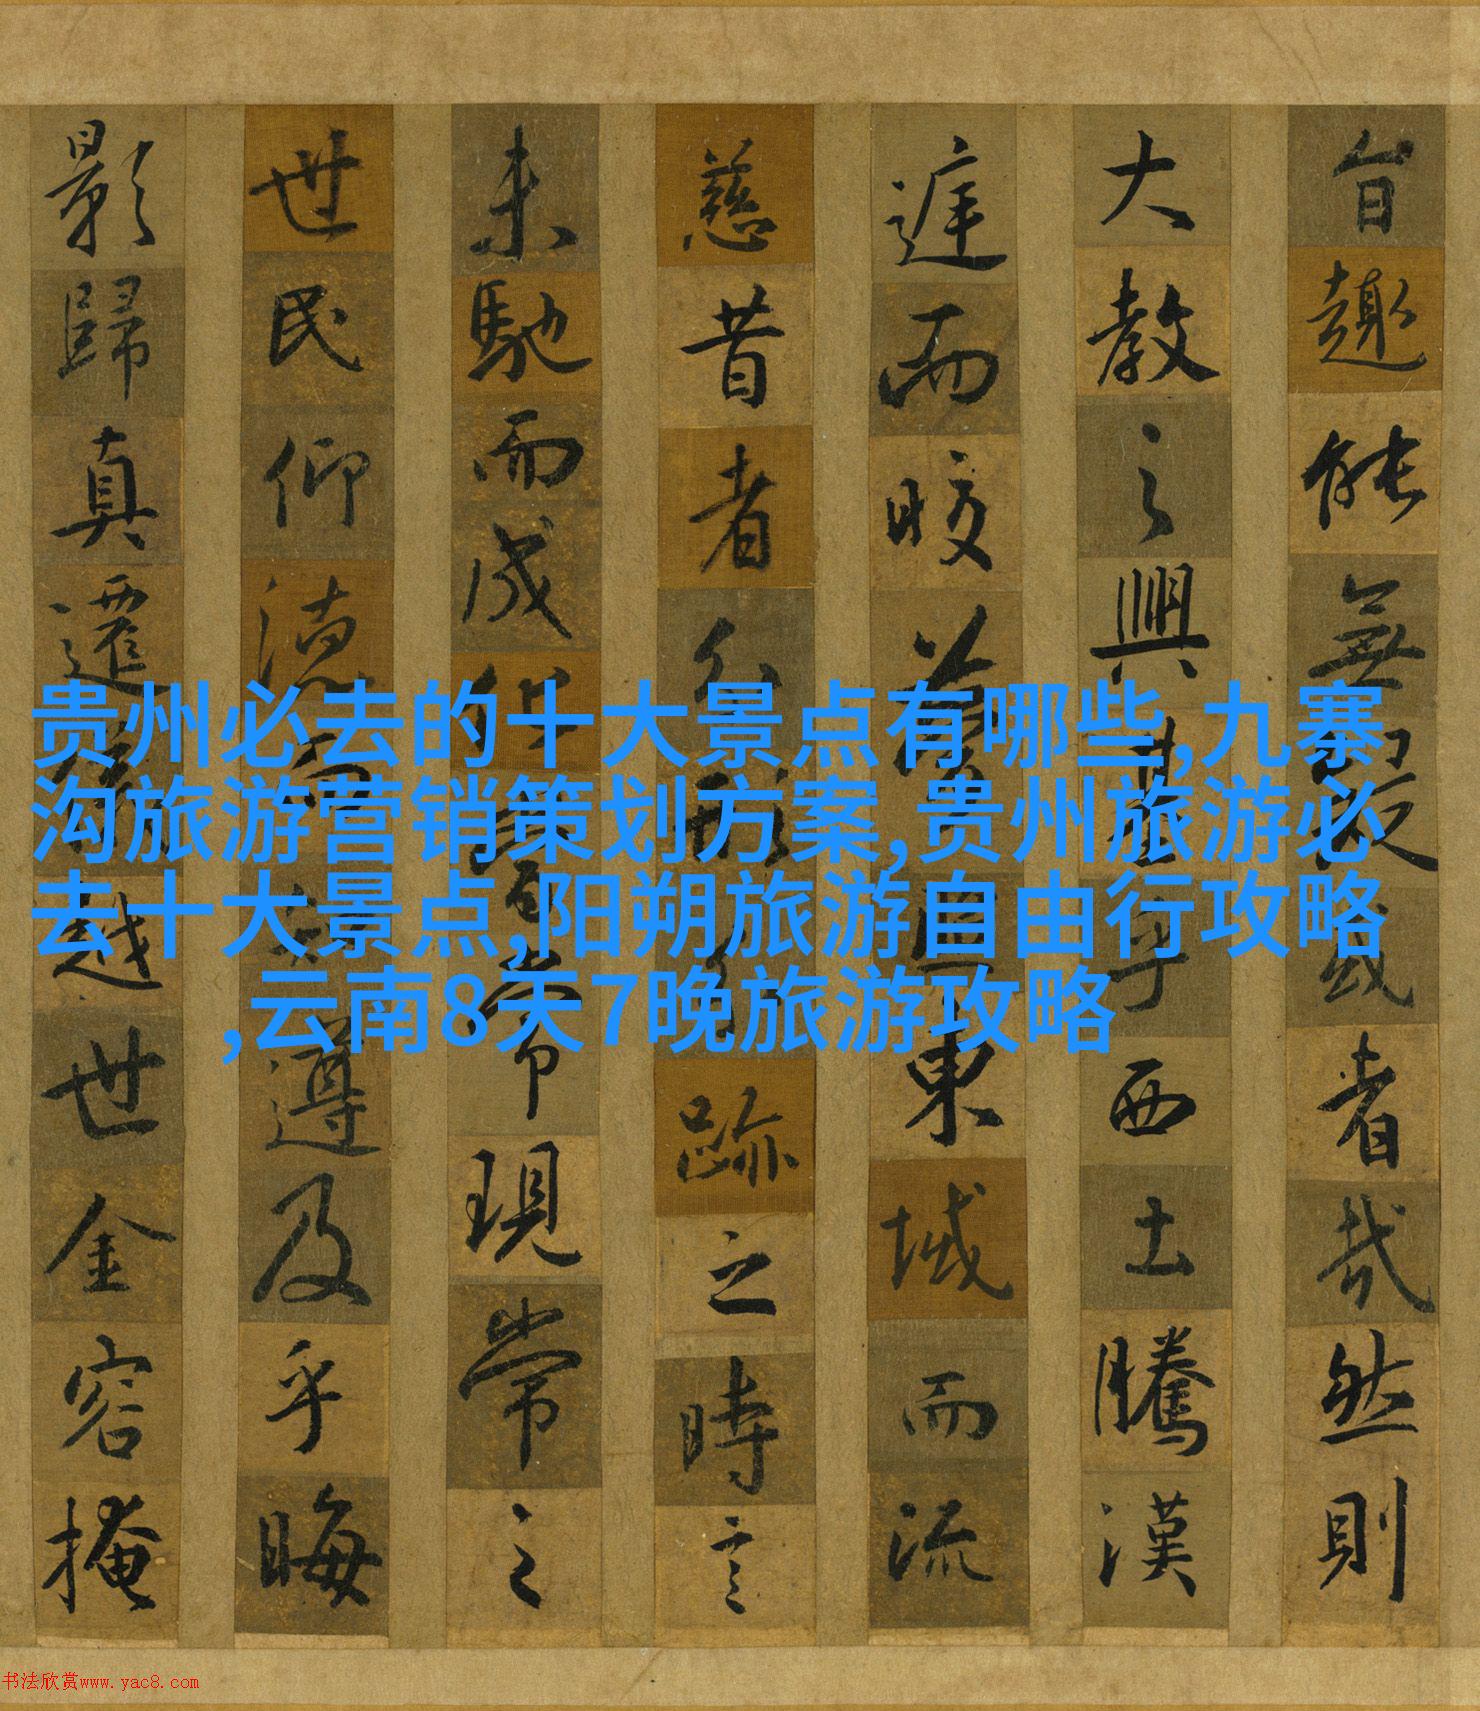 旨趣能無疑惑者哉然則
大教之興基乎西土騰漢
庭而皎夢照東域而流
慈昔者分形分跡之時言
未馳而成化當常現常之
世民仰德而知遵及乎晦
影歸真遷儀越世金容掩
贵州必去的十大景点有哪些,九寨
沟旅游营销策划方案,贵州旅游必
去十大景点,阳朔旅游自由行攻略
,云南8天7晚旅游攻略
书法欣赏www.yac8.com